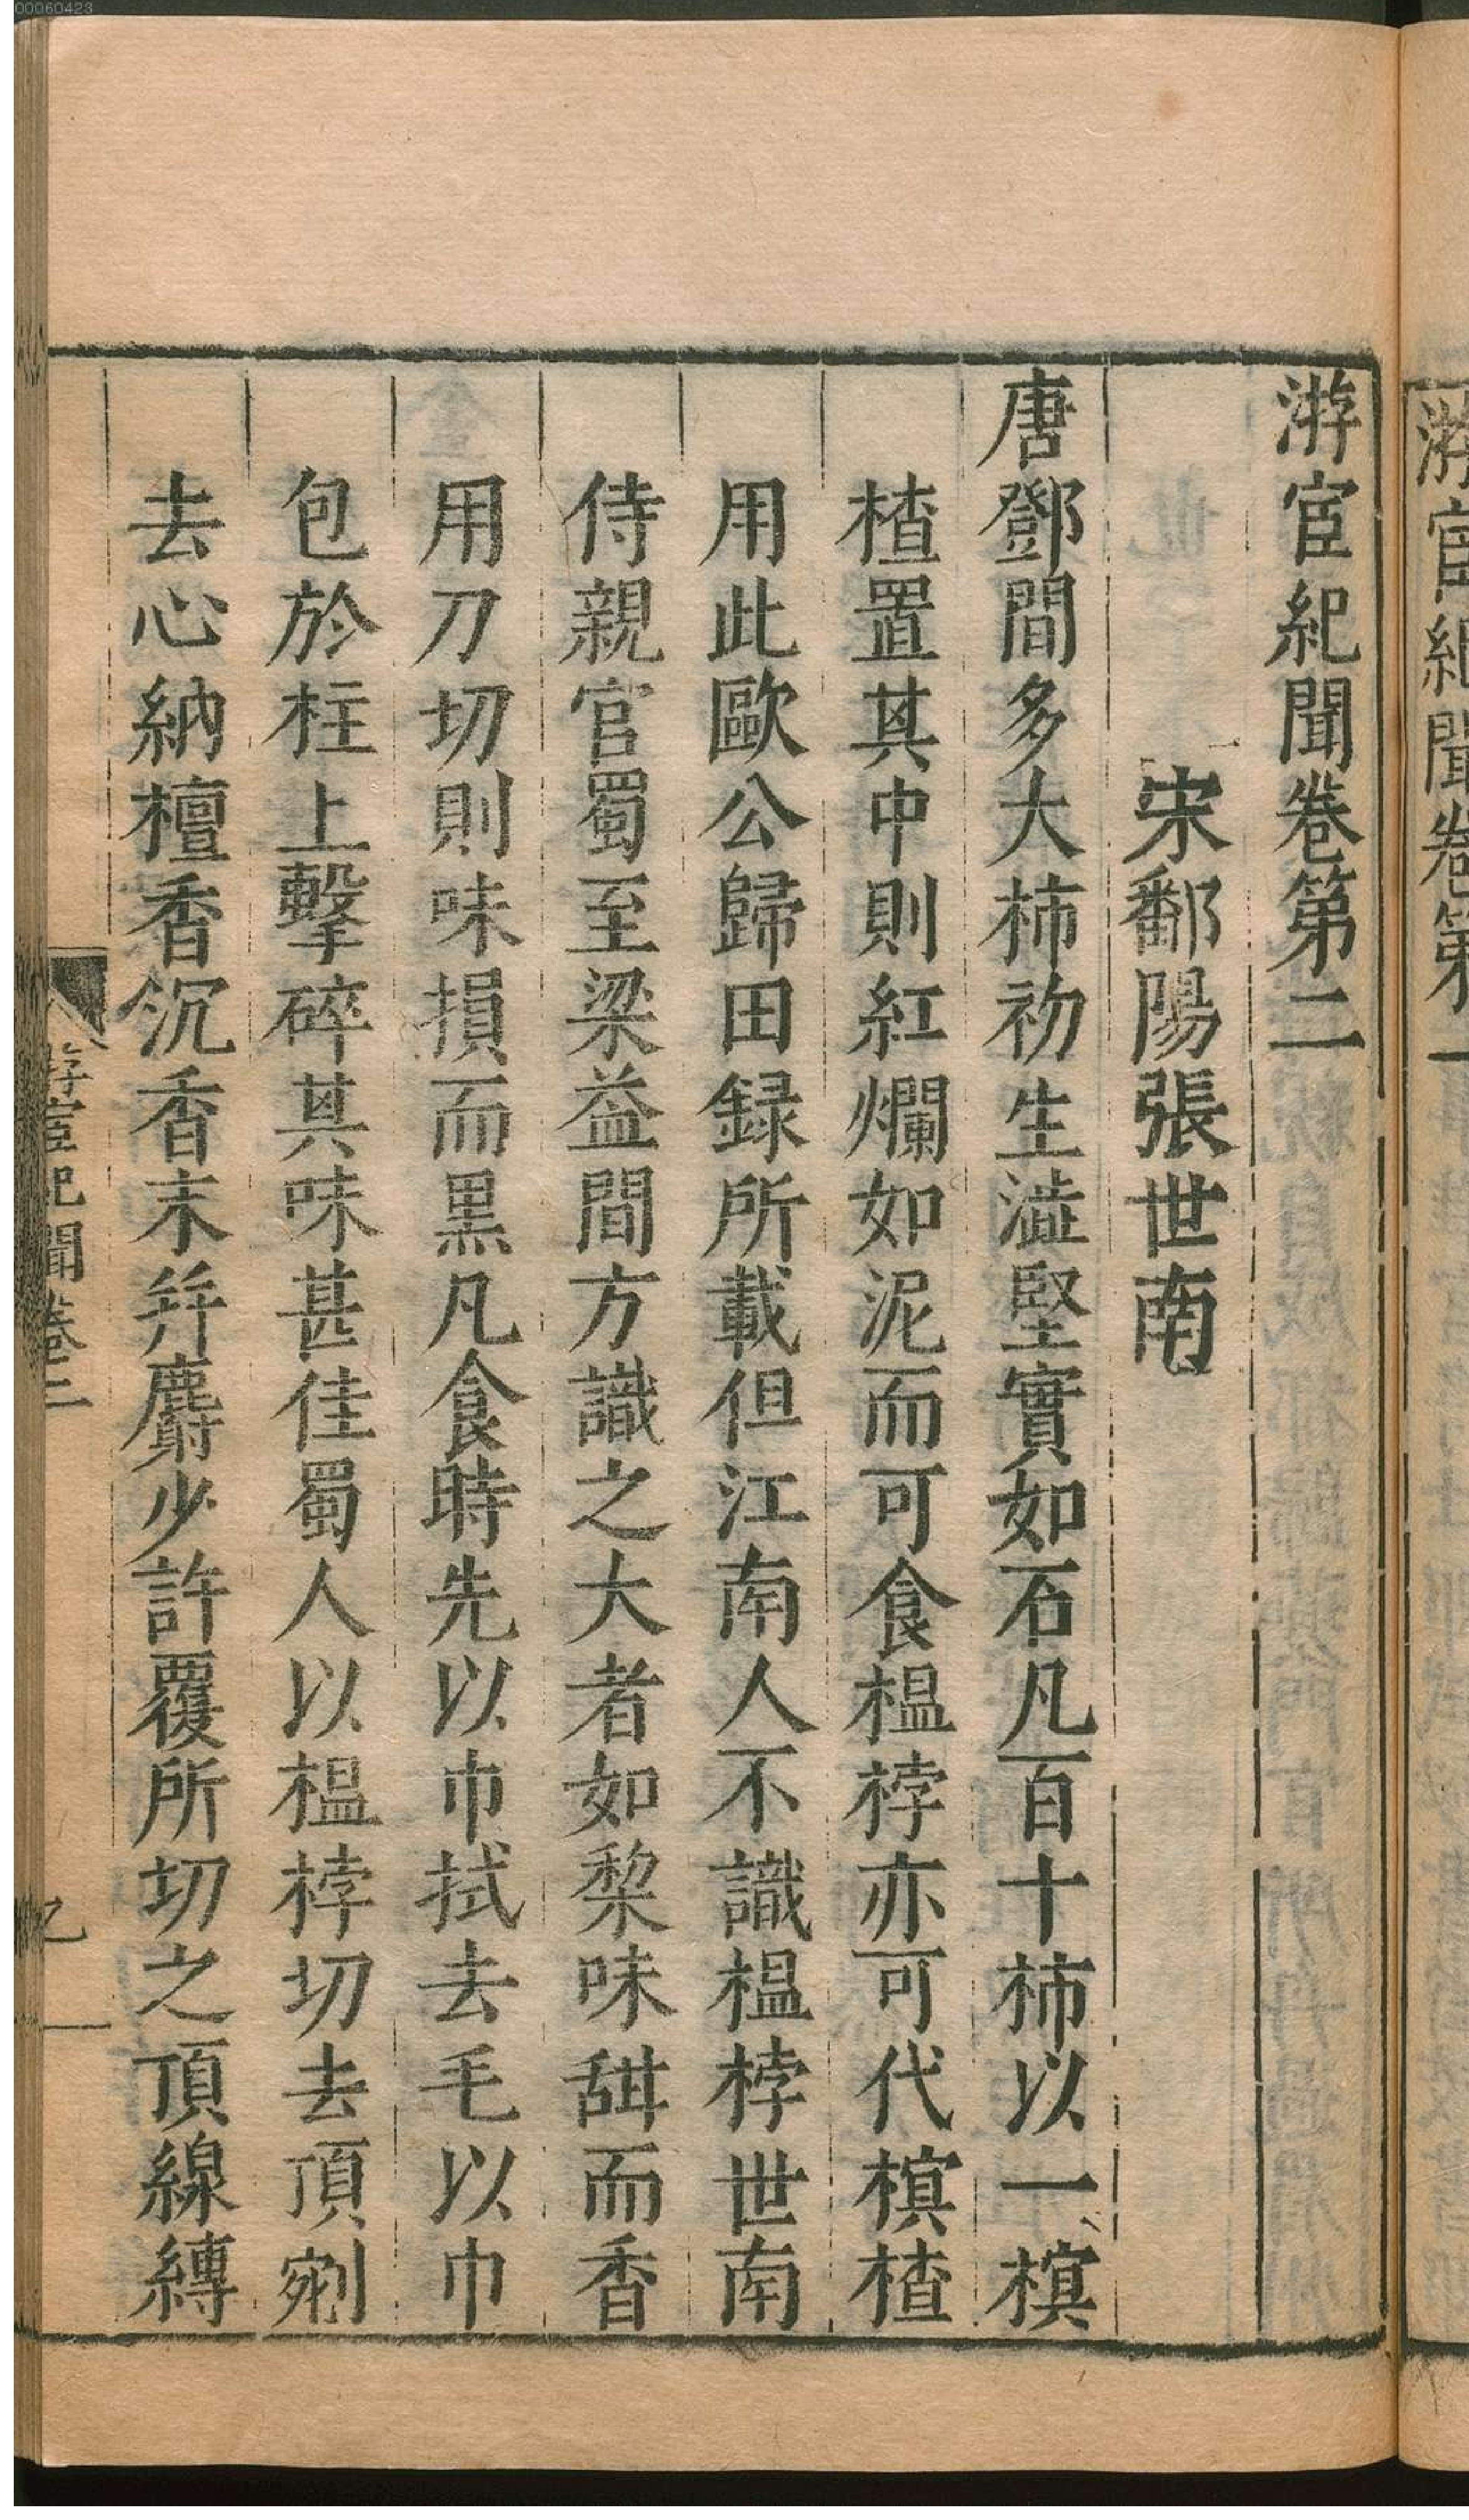 00060423
游宦紀聞卷第一
游宦紀聞卷第二
宋鄱陽張世南
唐鄧間多大柿初生澁堅實如石凡百十柿以一榠
楂置其中則紅爛如泥而可食榲桲亦可代榠楂
用此歐公歸田録所載但江南人不識榲桲世南
侍親官蜀至梁益間方識之大者如梨味甜而香
用刀切則味損而黒凡食時先以巾拭去毛以巾
包於柱上擊碎其味甚佳蜀人以榲桲切去頂剜
去心納檀香沉香末并麝少許覆所切之頂線縛
游宦紀聞卷二